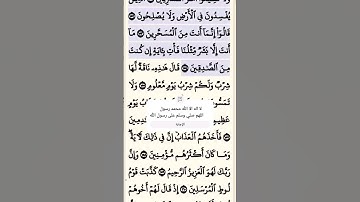 يُفْسِدُونَ فِي ٱلْأَرْضِ وَلَا يُصْلِحُونَ
قَالُوٓا۟ إِنَّمَآ أَنتَ مِنَ ٱلْمُسَحَّرِينَ مَآ
أَنتَ إِلَّا بَشَرٌ مِّثْلُنَا فَأْتِ بِـَٔايَةٍ إِن كُنتَ
مِنَ ٱلصَّـٰدِقِينَ قَالَ هَـٰذِهِۦ نَاقَةٌ لَّهَا
شِرْبٌ وَلَكُمْ شِرْبُ يَوْمٍ مَّعْلُومٍ وَلَا
لا اله الا الله محمد رسول
اللهم صلي وسلم على رسول الله
فَأَخَذَهُمُ ٱلْعَذَابُ إِنَّ فِي ذَٰلِكَ لَـَٔايَةً
وَمَا كَانَ أَكْثَرُهُم مُّؤْمِنِينَ وَإِنَّ
رَبَّكَ لَهُوَ ٱلْعَزِيزُ ٱلرَّحِيمُ كَذَّبَتْ قَوْمُ
لُوطٍ ٱلْمُرْسَلِينَ إِذْ قَالَ لَهُمْ أَخُوهُمْ